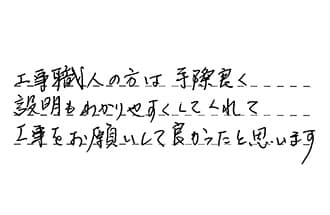 工事職人の方は手際良く
説明もわかりやすくしてくれて
工事をお願いして良かったと思います